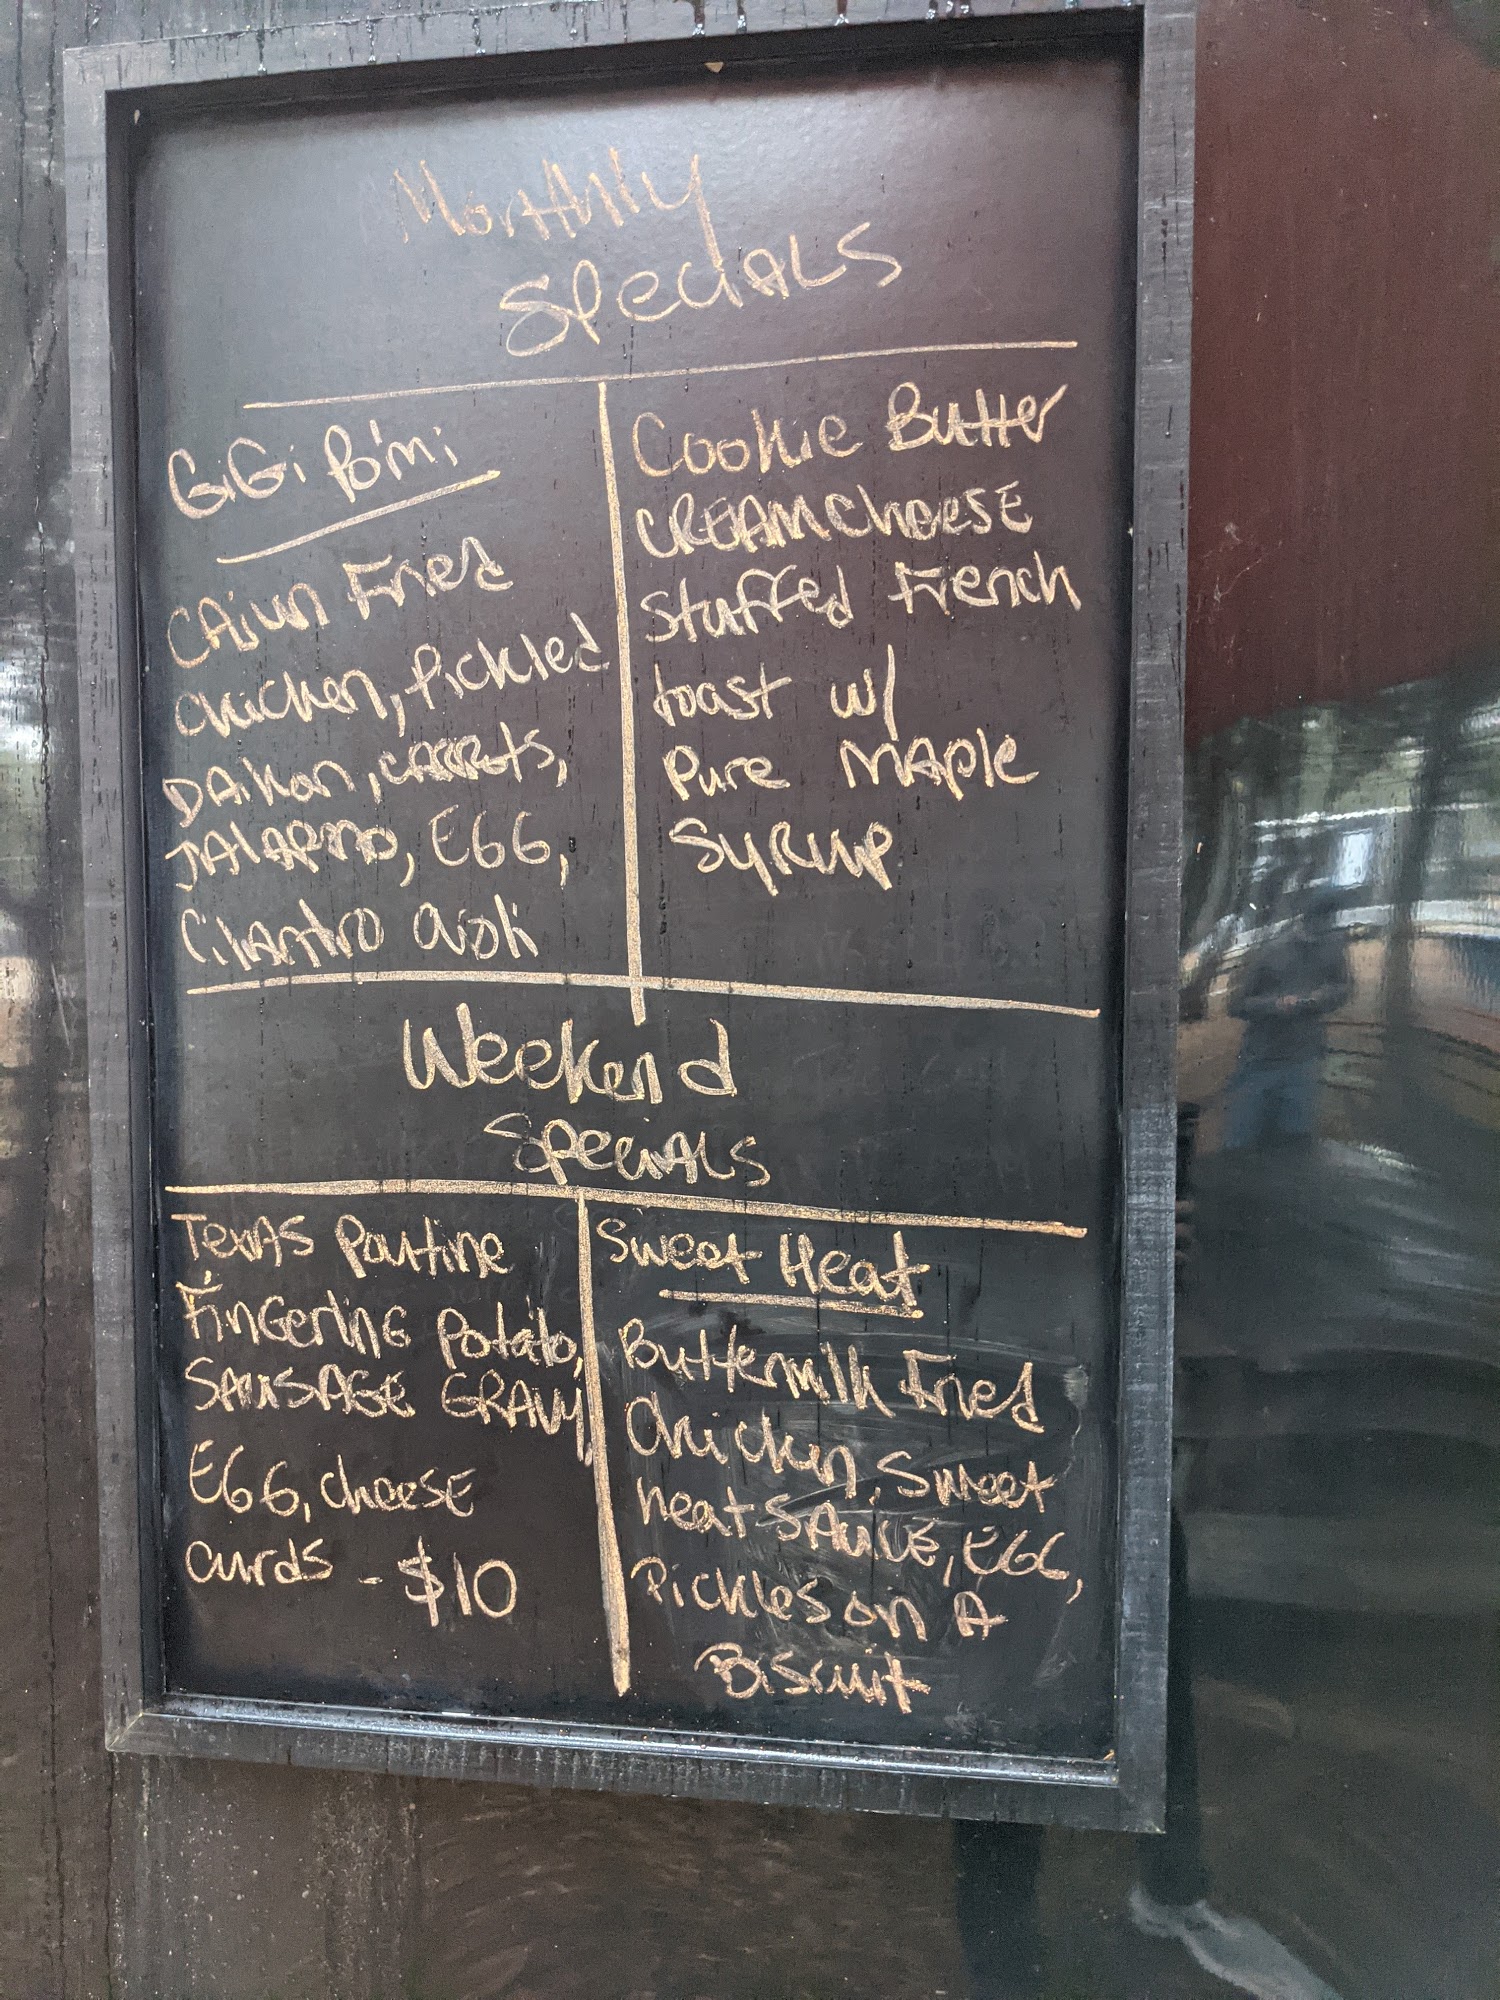 Monthly
Specials
GiGi Po'mi
Cajun Fried
Chicken, Pickled
Daikon, carrots,
Jalapeno, Egg,
Cilantro aioli
Cookie Butter
Creamcheese
Stuffed French
toast w/
Pure Maple
Syrup
Weekend
Specials
Texas Poutine
Fingerling Potato,
Sausage Gravy,
Egg, cheese
curds - $10
Sweet Heat
Buttermilk Fried
Chicken, Sweet
heat Sauce, Egg,
Pickles on A
Biscuit